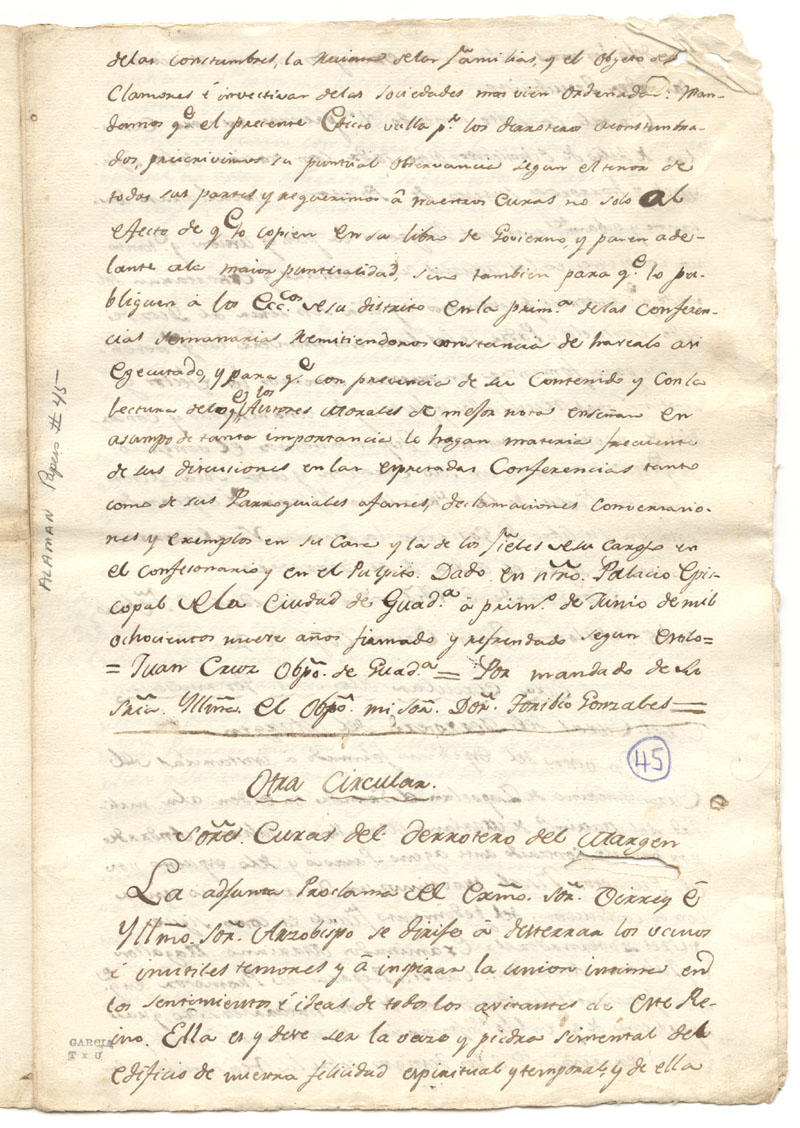 delas constumbres, la Ruina delas familias, y el objeto de
Clamores é invectivas delas sociedades mas vien ordenadas: Man-
damos qe el presente Edicto valla pr. los derroteros acostumbra-
dos, prescrivimos su puntual observancia segun el tenor de
todas sus partes y requerimos á nuestros Curas no solo al
efecto de qe lo copien en su libro de Govierno, y pasen ade-
lante ala maior puntualidad, sino tambien para qe. lo pu-
bliquen à los Eccos. de su distrito en la prima. de las Conferen-
cias semanarias Remitiendonos constancia de haverlo asi
egecutado, y para qe con presencia de su Contenido y Conla
lectura delo qe los Autores Morales de mejor nota enseñan en
asumpo de tanta importancia lo hagan materia frecuente
de sus discuciones en las expresadas Conferencias tanto
como de sus Parroquiales afanes, declamaciones Conversacio-
nes y exemplos en su Casa y la de los fieles de su cargo en
el Confesonario y en el Pulpito. Dado en ntro. Palacio Epis-
copal de la Ciudad de Guada. á primo. de Junio de mil
ochocientos nueve años firmado y refrendado segun estilo=
= Juan Cruz Obpo. de Guada. = Por mandado de Su
Sria. Yllma. el Obpo. mi Sor. Don. Toribio Gonzales =
45
Otra Circular.
Sores. Curas del derrotero del Margen
La adjunta Proclama del Exmo. Sor. Virrey é
Yllmo. Sor. Arzobispo se dirije á desterrar los vanos
é inutiles temores y á inspirar la union intima en
los sentimientos é ideas de todos los avitantes de este Re-
ino. Ella es y deve ser la vaza y piedra simental del
edificio de nuestra felicidad espiritual y temporal, y de ella
ALAMAN Papers # 45-
GARCIA
T x U